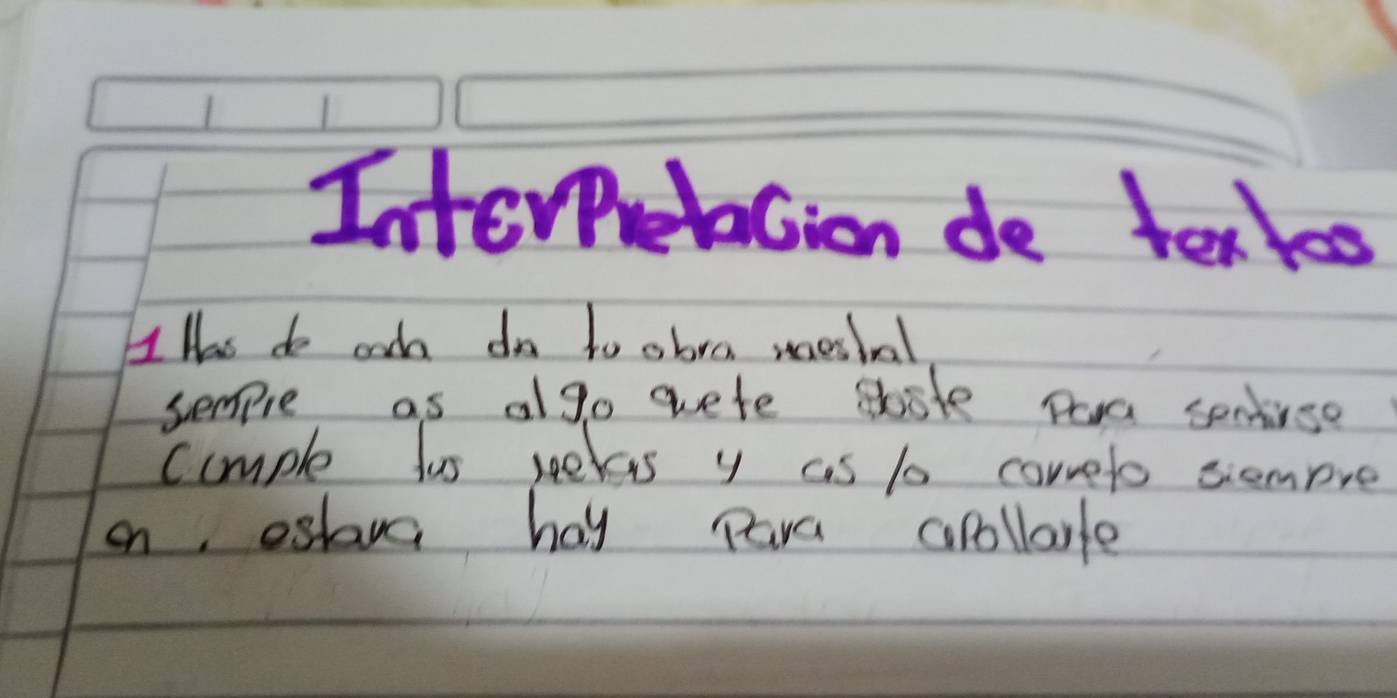 InterPretaCion de textos
1 Has de cada da tu obra maestral
sempre as algo quete guste Para sentirse
Cumple tus metas y as lo correto siempre
estara hay Para apollarte